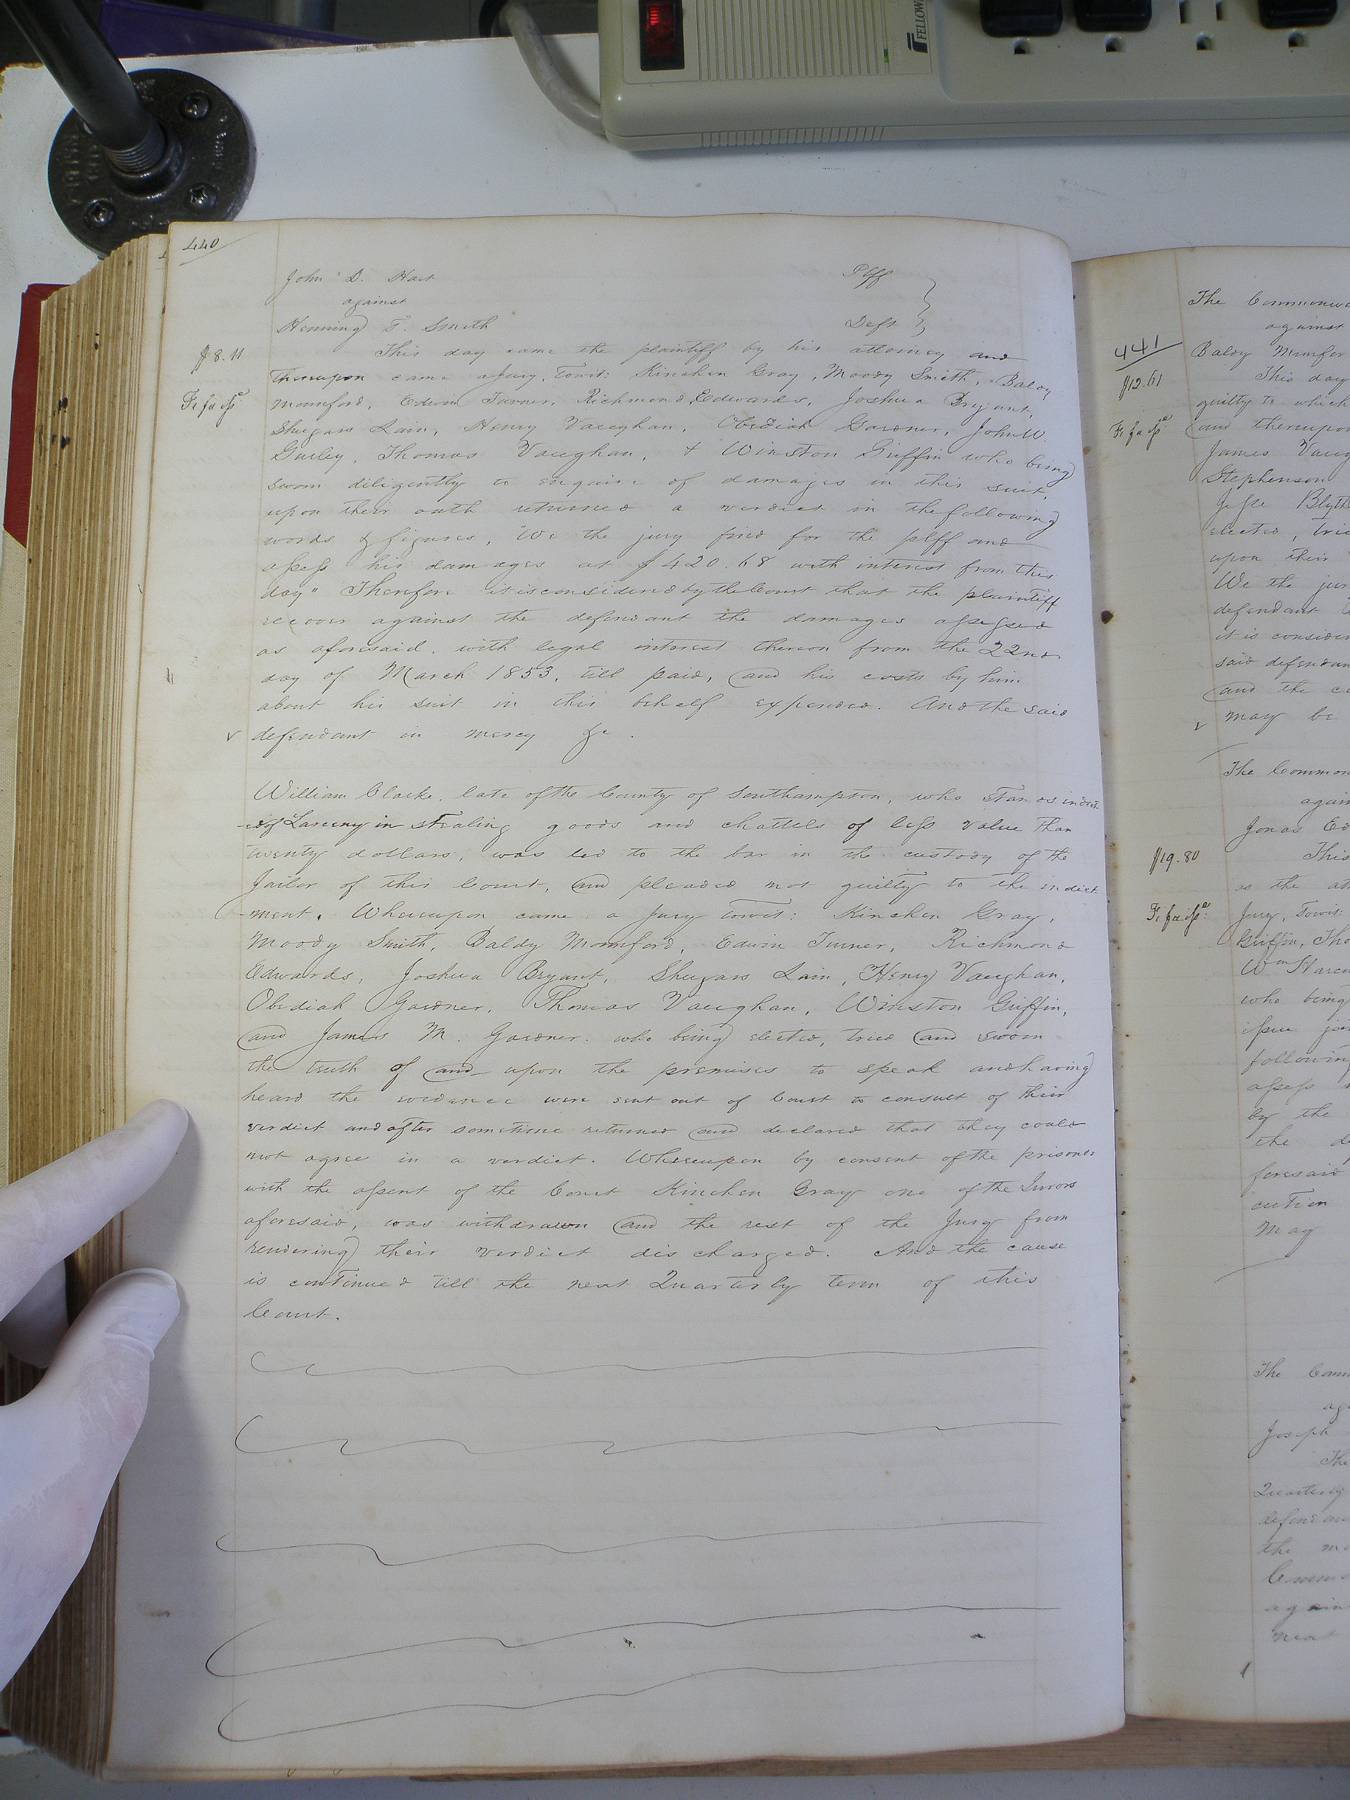 FELLOW
440
John D. Hart Plff
against
Henning T. Smith Deft
$8.11
This day came the plaintiff by his attorney and
thereupon came a Jury, Towit: Kinchen Gray, Moody Smith, Baldy
Fi fa issd
Momford, Edwin Turner, Richmond Edwards, Joshua Bryant,
Shugars Lain, Henry Vaughan, Obidiah Gardner, John W.
Gurley, Thomas Vaughan, & Winston Griffin who being
sworn diligently to enquire of damages in this suit,
upon their oath returned a verdict in the following
words & figures, "We the jury find for the plff and
assess his damages at $420.68 with interest from this
day" Therefore it is considered by the Court that the plaintiff
recover against the defendant the damages assessed
as aforesaid, with legal interest thereon from the 22nd
day of March 1853, till paid, and his costs by him
about his suit in this behalf expended. And the said
defendant in mercy &c.
William Clarke, late of the County of Southampton, who Stands indict
-ed of Larceny in stealing goods and chattels of less value than
twenty dollars, was led to the bar in the custody of the
Jailor of this Court, and pleaded not guilty to the indict
-ment. Whereupon came a Jury towit: Kinchen Gray,
Moody Smith, Baldy Momford, Edwin Turner, Richmond
Edwards, Joshua Bryant, Shugars Lain, Henry Vaughan,
Obidiah Gardner, Thomas Vaughan, Winston Griffin,
and James M. Gardner. who being elected, tried and sworn
the truth of and upon the premises to speak and having
heard the evidence were sent out of Court to consult of their
verdict and after sometime returned and declared that they could
not agree in a verdict. Whereupon by consent of the prisoner
with the assent of the Court Kinchen Gray one of the Jurors
aforesaid, was withdrawn and the rest of the Jury from
rendering their verdict discharged. And the cause
is continued till the next Quarterly term of this
Court.
441
The Commonwe
against
Baldy Mumfor
$12.61
This day
guilty to which
Fi fa issd
and thereupon
James Vaug
Stephenson
Jesse Blyth
elected, tri
upon their
We the jur
defendant
it is consider
said defendan
and the co
may be
The Common
again
Jonas Ed
$19.80
This
as the at
Fi fa issd
Jury, Towit
Griffin, Tho
who being
issue joi
following
assess
by the
the d
foresaid
cution
May
The Comm
ag
Joseph
The
Quarterly
defendan
the m
Comm
again
next